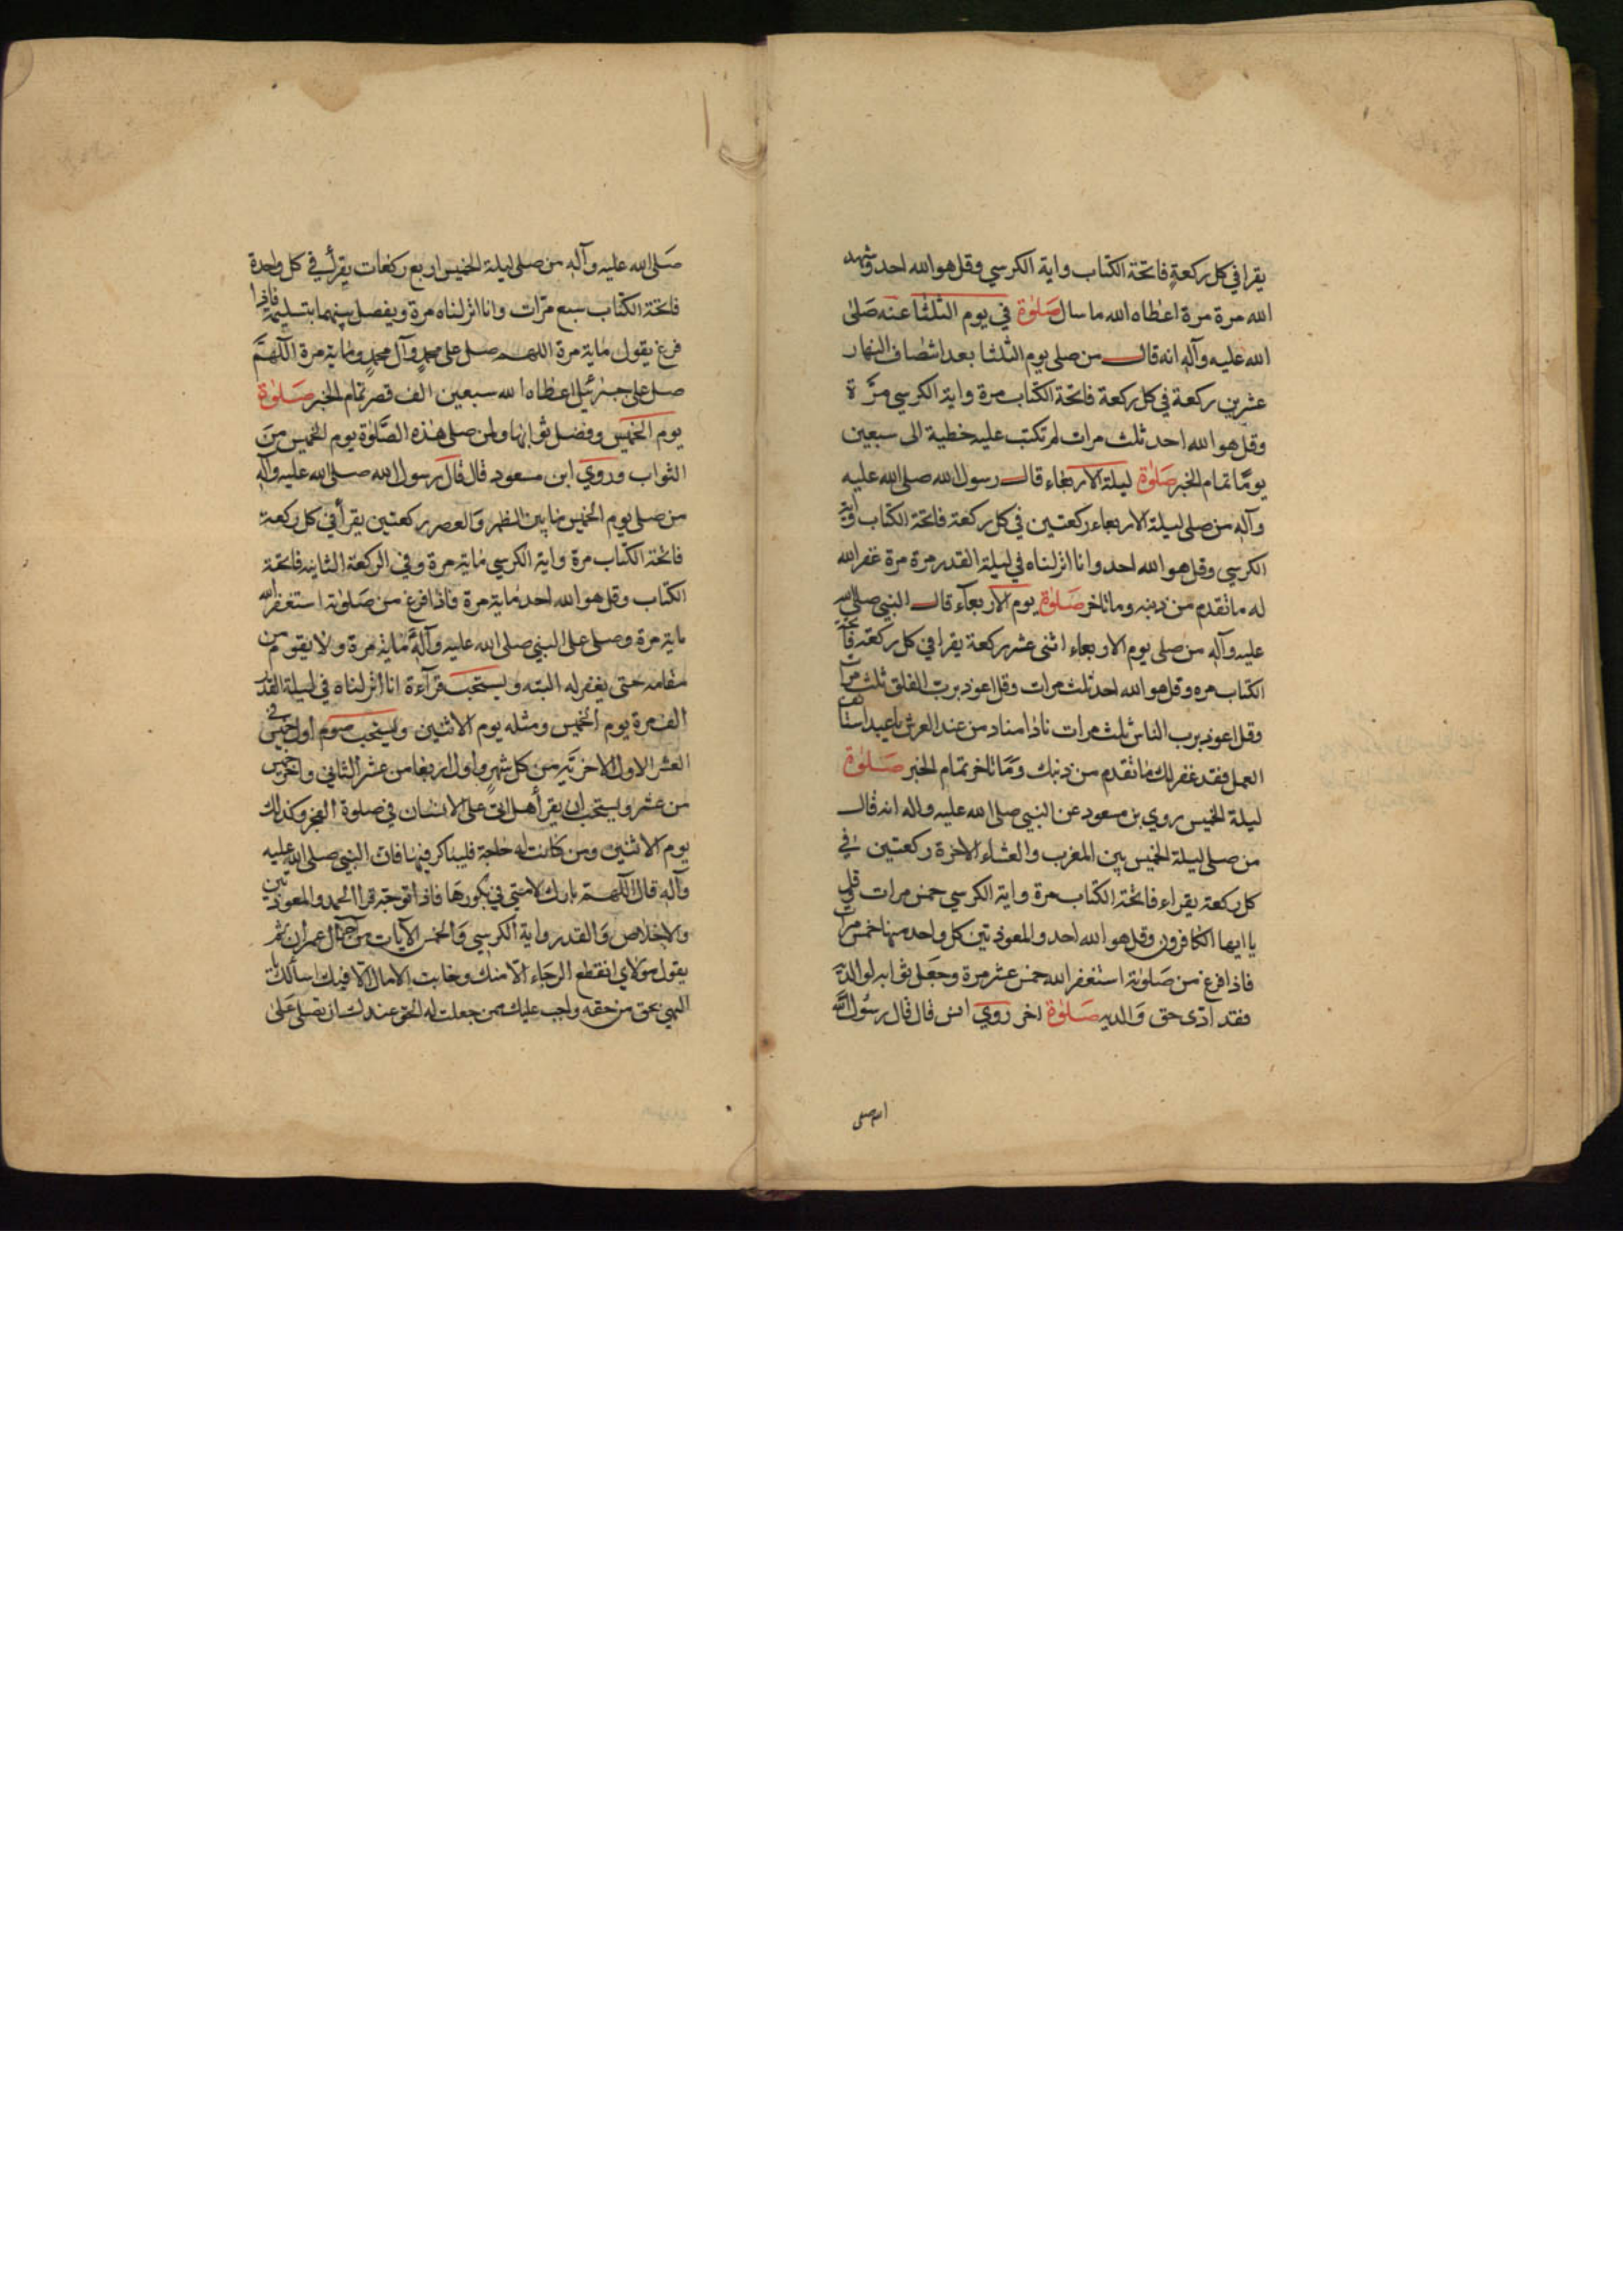 يقرا في كل ركعة فاتحة الكتاب واية الكرسي وقل هو الله احد وشهد
الله مرة مرة اعطاه الله ما سال صلوة في يوم الثلثا عنه صلى
الله عليه وآله انه قال من صلى يوم الثلثا بعد انتصاف النهار
عشرين ركعة في كل ركعة فاتحة الكتاب مرة واية الكرسي مرّة
وقل هو الله احد ثلث مرات لم تكتب عليه خطية الى سبعين
يومًا تمام الخبر صلوة ليلة الاربعاء قال رسول الله صلى الله عليه
وآله من صلى ليلة الاربعاء ركعتين في كل ركعة فاتحة الكتاب واية
الكرسي وقل هو الله احد وانا انزلناه في ليلة القدر مرة مرة غفر الله
له ما تقدم من ذنبه وما تاخر صلوة يوم الاربعاء قال النبي صلى الله
عليه وآله من صلى يوم الاربعاء اثنى عشر ركعة يقرا في كل ركعة فاتحة
الكتاب مره وقل هو الله احد ثلث مرات وقل اعوذ برب الفلق ثلث مرات
وقل اعوذ برب الناس ثلث مرات ناداه مناد من عند العرش يا عبد الله استانف
العمل فقد غفر لك ما تقدم من ذنبك وما تاخر تمام الخبر صلوة
ليلة الخميس روي بن مسعود عن النبي صلى الله عليه واله انه قال
من صلى ليلة الخميس بين المغرب والعشاء الاخرة ركعتين في
كل ركعة يقراء فاتحة الكتاب مرة واية الكرسي خمس مرات وقل
يا ايها الكافرون وقل هو الله احد والمعوذتين كل واحد منها خمس مرات
فاذا فرغ من صلوته استغفر الله خمس عشر مرة وجعل ثوابه لوالديه
فقد ادّى حق والديه صلوة اخر روي انس قال قال رسول الله
الله صلى
صلى الله عليه وآله من صلى ليلة الخميس اربع ركعات يقرأ في كل واحدة
فاتحة الكتاب سبع مرّات وانا انزلناه مرة ويفصل بينهما بتسليم فاذا
فرغ يقول ماية مرة اللهم صل على محمد وآل محمد وماية مرة اللهمّ
صل على جبرئيل اعطاه الله سبعين الف قصر تمام الخبر صلوة
يوم الخميس وفضل ثوابها ولمن صلى هذه الصّلوة يوم الخميس من
الثواب وروي ابن مسعود قال قال رسول الله صلى الله عليه وآله
من صلى يوم الخميس ما بين الظهر والعصر ركعتين يقرأ في كل ركعة
فاتحة الكتاب مرة واية الكرسي ماية مرة وفي الركعة الثانيه فاتحة
الكتاب وقل هو الله احد ماية مرة فاذا فرغ من صلوته استغفر الله
ماية مرة وصلى على النبي صلى الله عليه وآله ماية مرة ولا يقوم من
مقامه حتى يغفر له البته ويستحب قرآءة انا انزلناه في ليلة القدر
الف مرة يوم الخميس ومثله يوم الاثنين ويستحب صوم اول خميس في
العشر الاول من كل شهر واول اربعا من عشر الثاني واخر خميس
من عشر ويستحب ان يقرأ هل اتى على الانسان في صلوة الفجر وكذلك
يوم الاثنين ومن كانت له حاجة فليباكر فيها فان النبي صلى الله عليه
وآله قال اللهم بارك لامتي في بكورها فاذا توجه قرا الحمد والمعوذتين
والاخلاص والقدر واية الكرسي والخمس الآيات من آل عمران ثم
يقول مولاي انقطع الرجاء الّا منك وخابت الامال الّا فيك اسألك
الهي بحق من حقه واجب عليك ممن جعلت له الحق عندك ان تصلى على